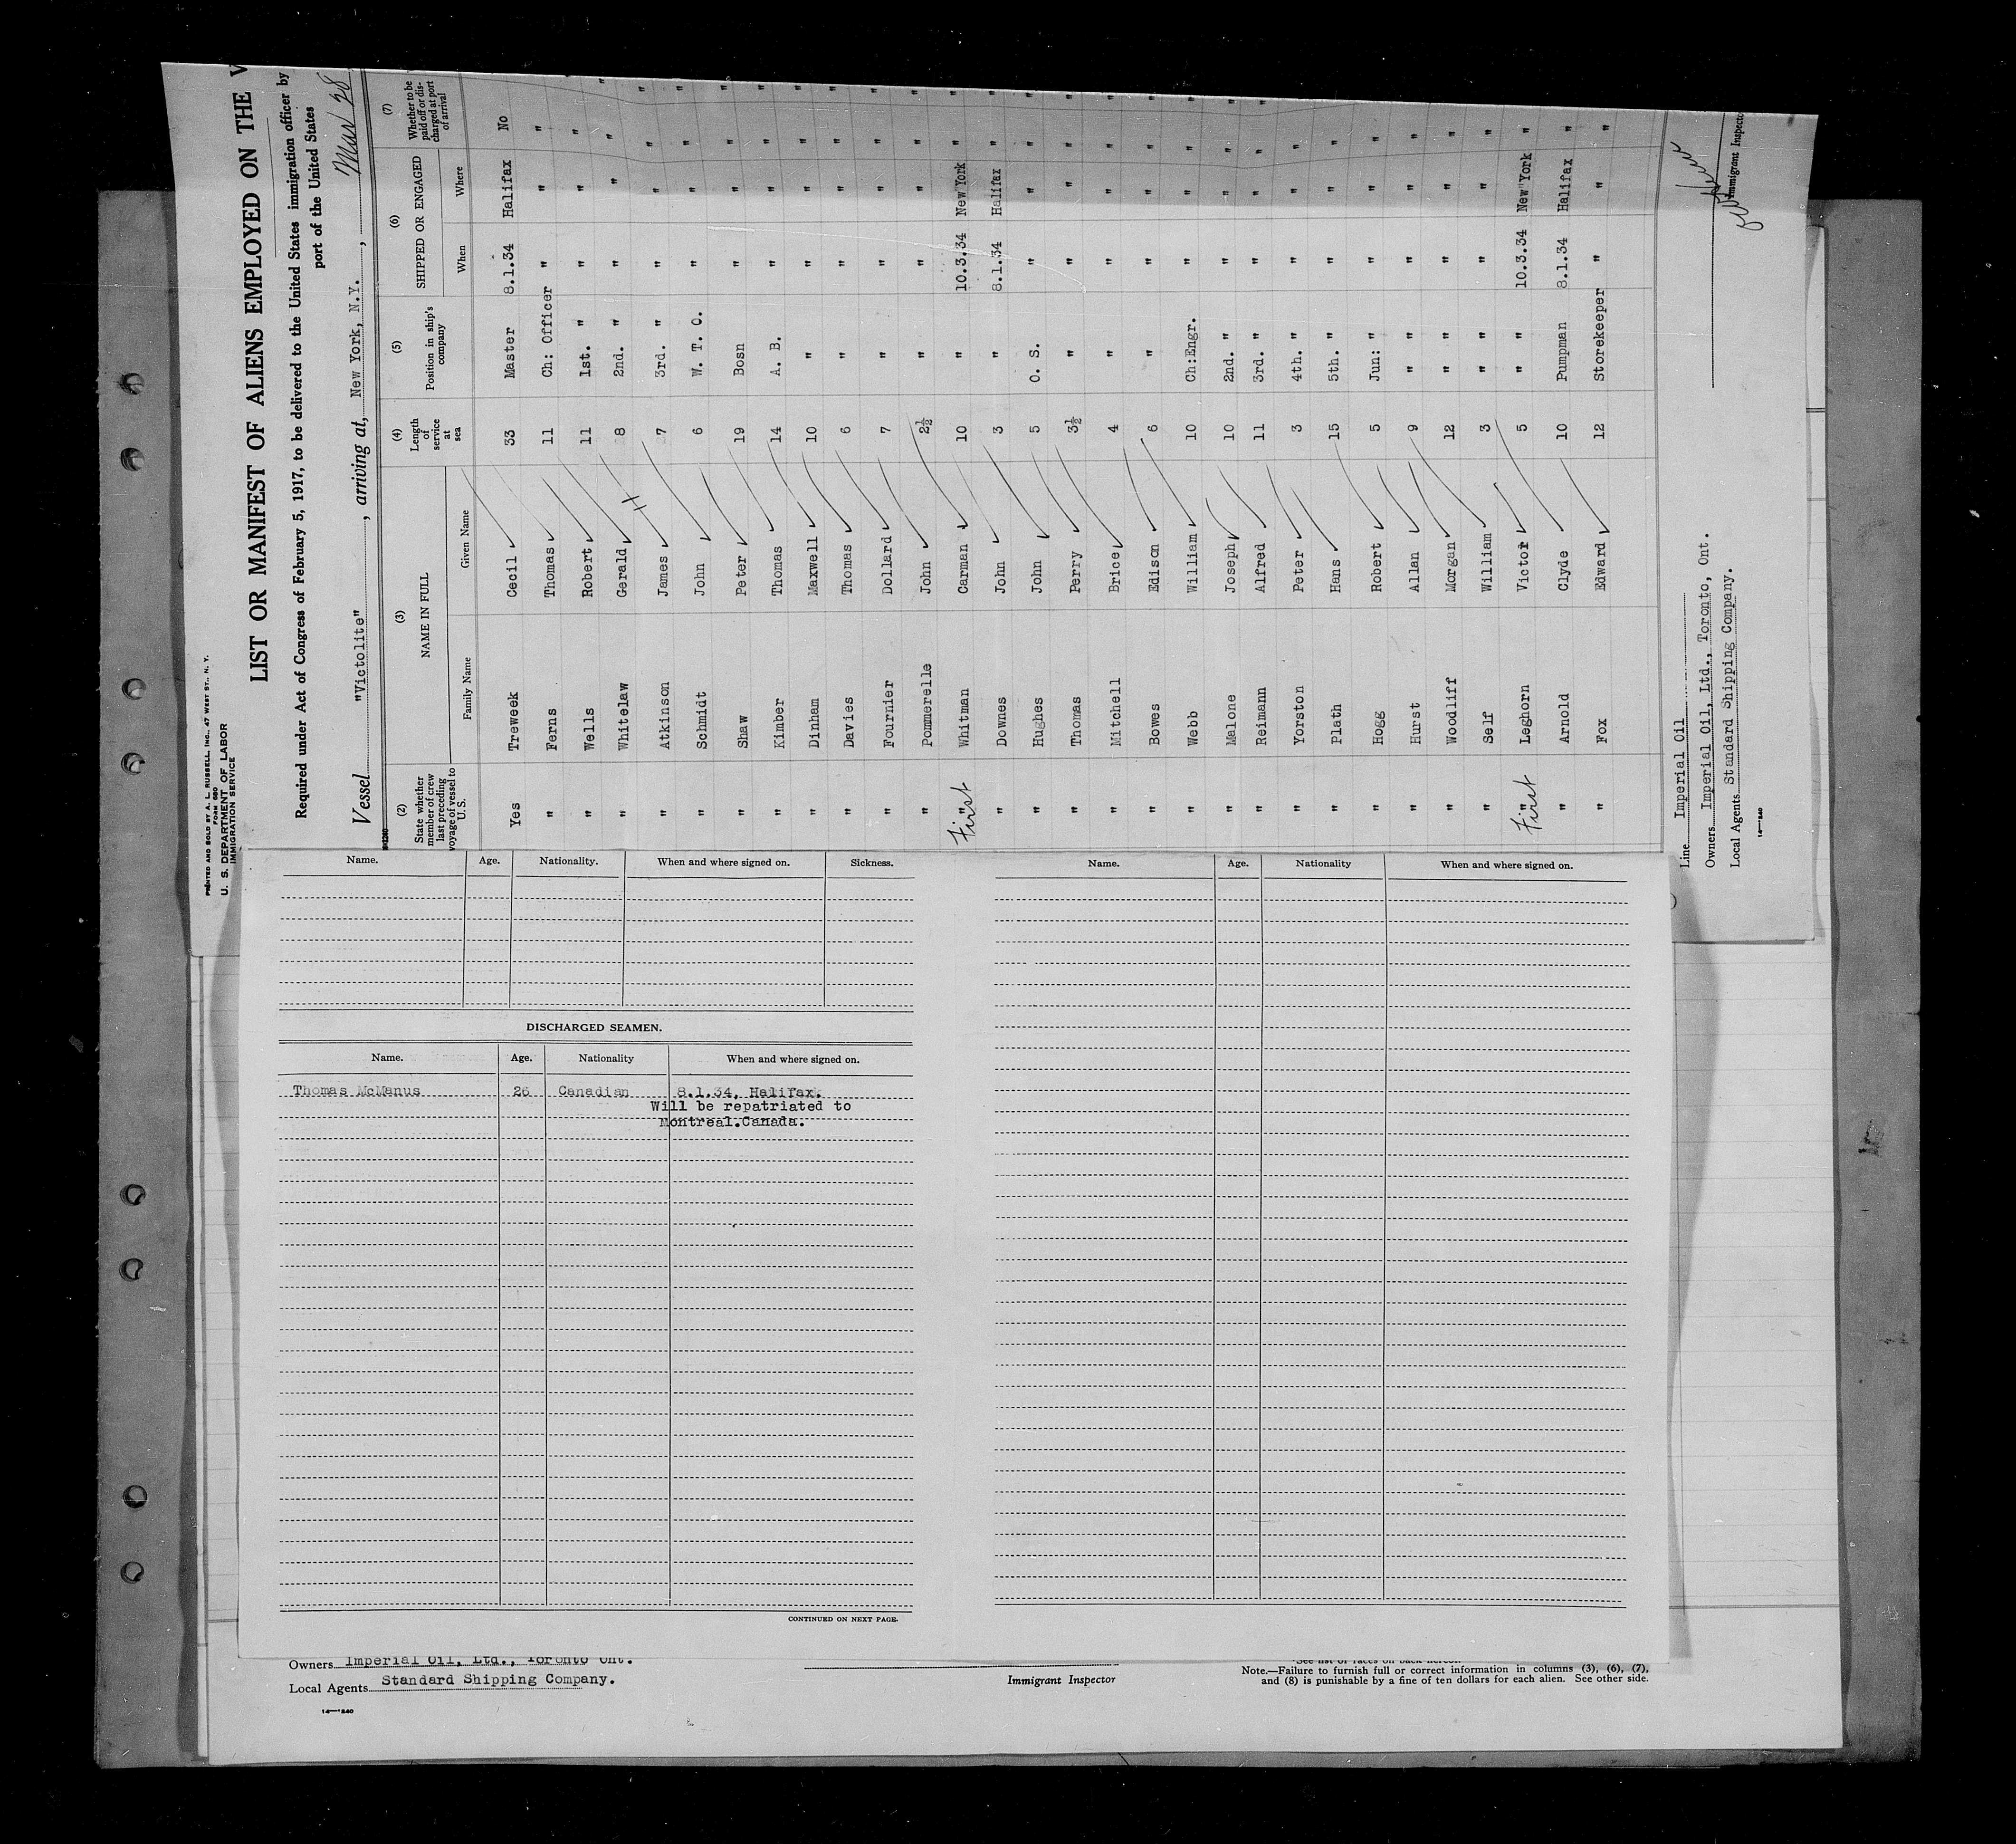 PRINTED AND SOLD BY A. L. RUSSELL, INC., 47 WEST ST., N. Y.
FORM 680
U. S. DEPARTMENT OF LABOR
IMMIGRATION SERVICE
LIST OR MANIFEST OF ALIENS EMPLOYED ON THE V
Required under Act of Congress of February 5, 1917, to be delivered to the United States immigration officer by
port of the United States
Vessel "Victolite", arriving at, New York, N.Y., Mar 28
(2) (3) (4) (5) (6) (7)
State whether member of crew last preceding voyage of vessel to U.S. NAME IN FULL Length of service at sea Position in ship's company SHIPPED OR ENGAGED Whether to be paid off or discharged at port of arrival
Family Name Given Name When Where
Yes Treweek Cecil 33 Master 8.1.34 Halifax No
" Ferns Thomas 11 Ch: Officer " " "
" Wells Robert 11 1st. " " " "
" Whitelaw Gerald 8 2nd. " " " "
" Atkinson James 7 3rd. " " " "
" Schmidt John 6 W. T. O. " " "
" Shaw Peter 19 Bosn " " "
" Kimber Thomas 14 A. B. " " "
" Dinham Maxwell 10 " " " "
" Davies Thomas 6 " " " "
" Fournier Dollard 7 " " " "
" Pommerelle John 2½ " " " "
First " Whitman Carman 10 " 10.3.34 New York "
" Downes John 3 " 8.1.34 Halifax "
" Hughes John 5 O. S. " " "
" Thomas Perry 3½ " " " "
" Mitchell Brice 4 " " " "
" Bowes Edison 6 " " " "
" Webb William 10 Ch:Engr. " " "
" Malone Joseph 10 2nd. " " " "
" Reimann Alfred 11 3rd. " " " "
" Yorston Peter 3 4th. " " " "
" Plath Hans 15 5th. " " " "
" Hogg Robert 5 Jun: " " " "
" Hurst Allan 9 " " " " "
" Woodliff Morgan 12 " " " " "
" Self William 3 " " " " "
First " Leghorn Victor 5 " " 10.3.34 New York "
" Arnold Clyde 10 Pumpman 8.1.34 Halifax "
" Fox Edward 12 Storekeeper " " "
Line Imperial Oil
Owners Imperial Oil, Ltd., Toronto, Ont.
Local Agents Standard Shipping Company.
14—240
Immigrant Inspecto
Name. Age. Nationality. When and where signed on. Sickness.
DISCHARGED SEAMEN.
Name. Age. Nationality When and where signed on.
Thomas McManus 26 Canadian 8.1.34, Halifax.
Will be repatriated to
Montreal.Canada.
CONTINUED ON NEXT PAGE.
Name. Age. Nationality When and where signed on.
Owners Imperial Oil, Ltd., Toronto Ont.
Local Agents Standard Shipping Company.
14—240
Immigrant Inspector
See list of races on back hereof.
Note.—Failure to furnish full or correct information in columns (3), (6), (7),
and (8) is punishable by a fine of ten dollars for each alien. See other side.